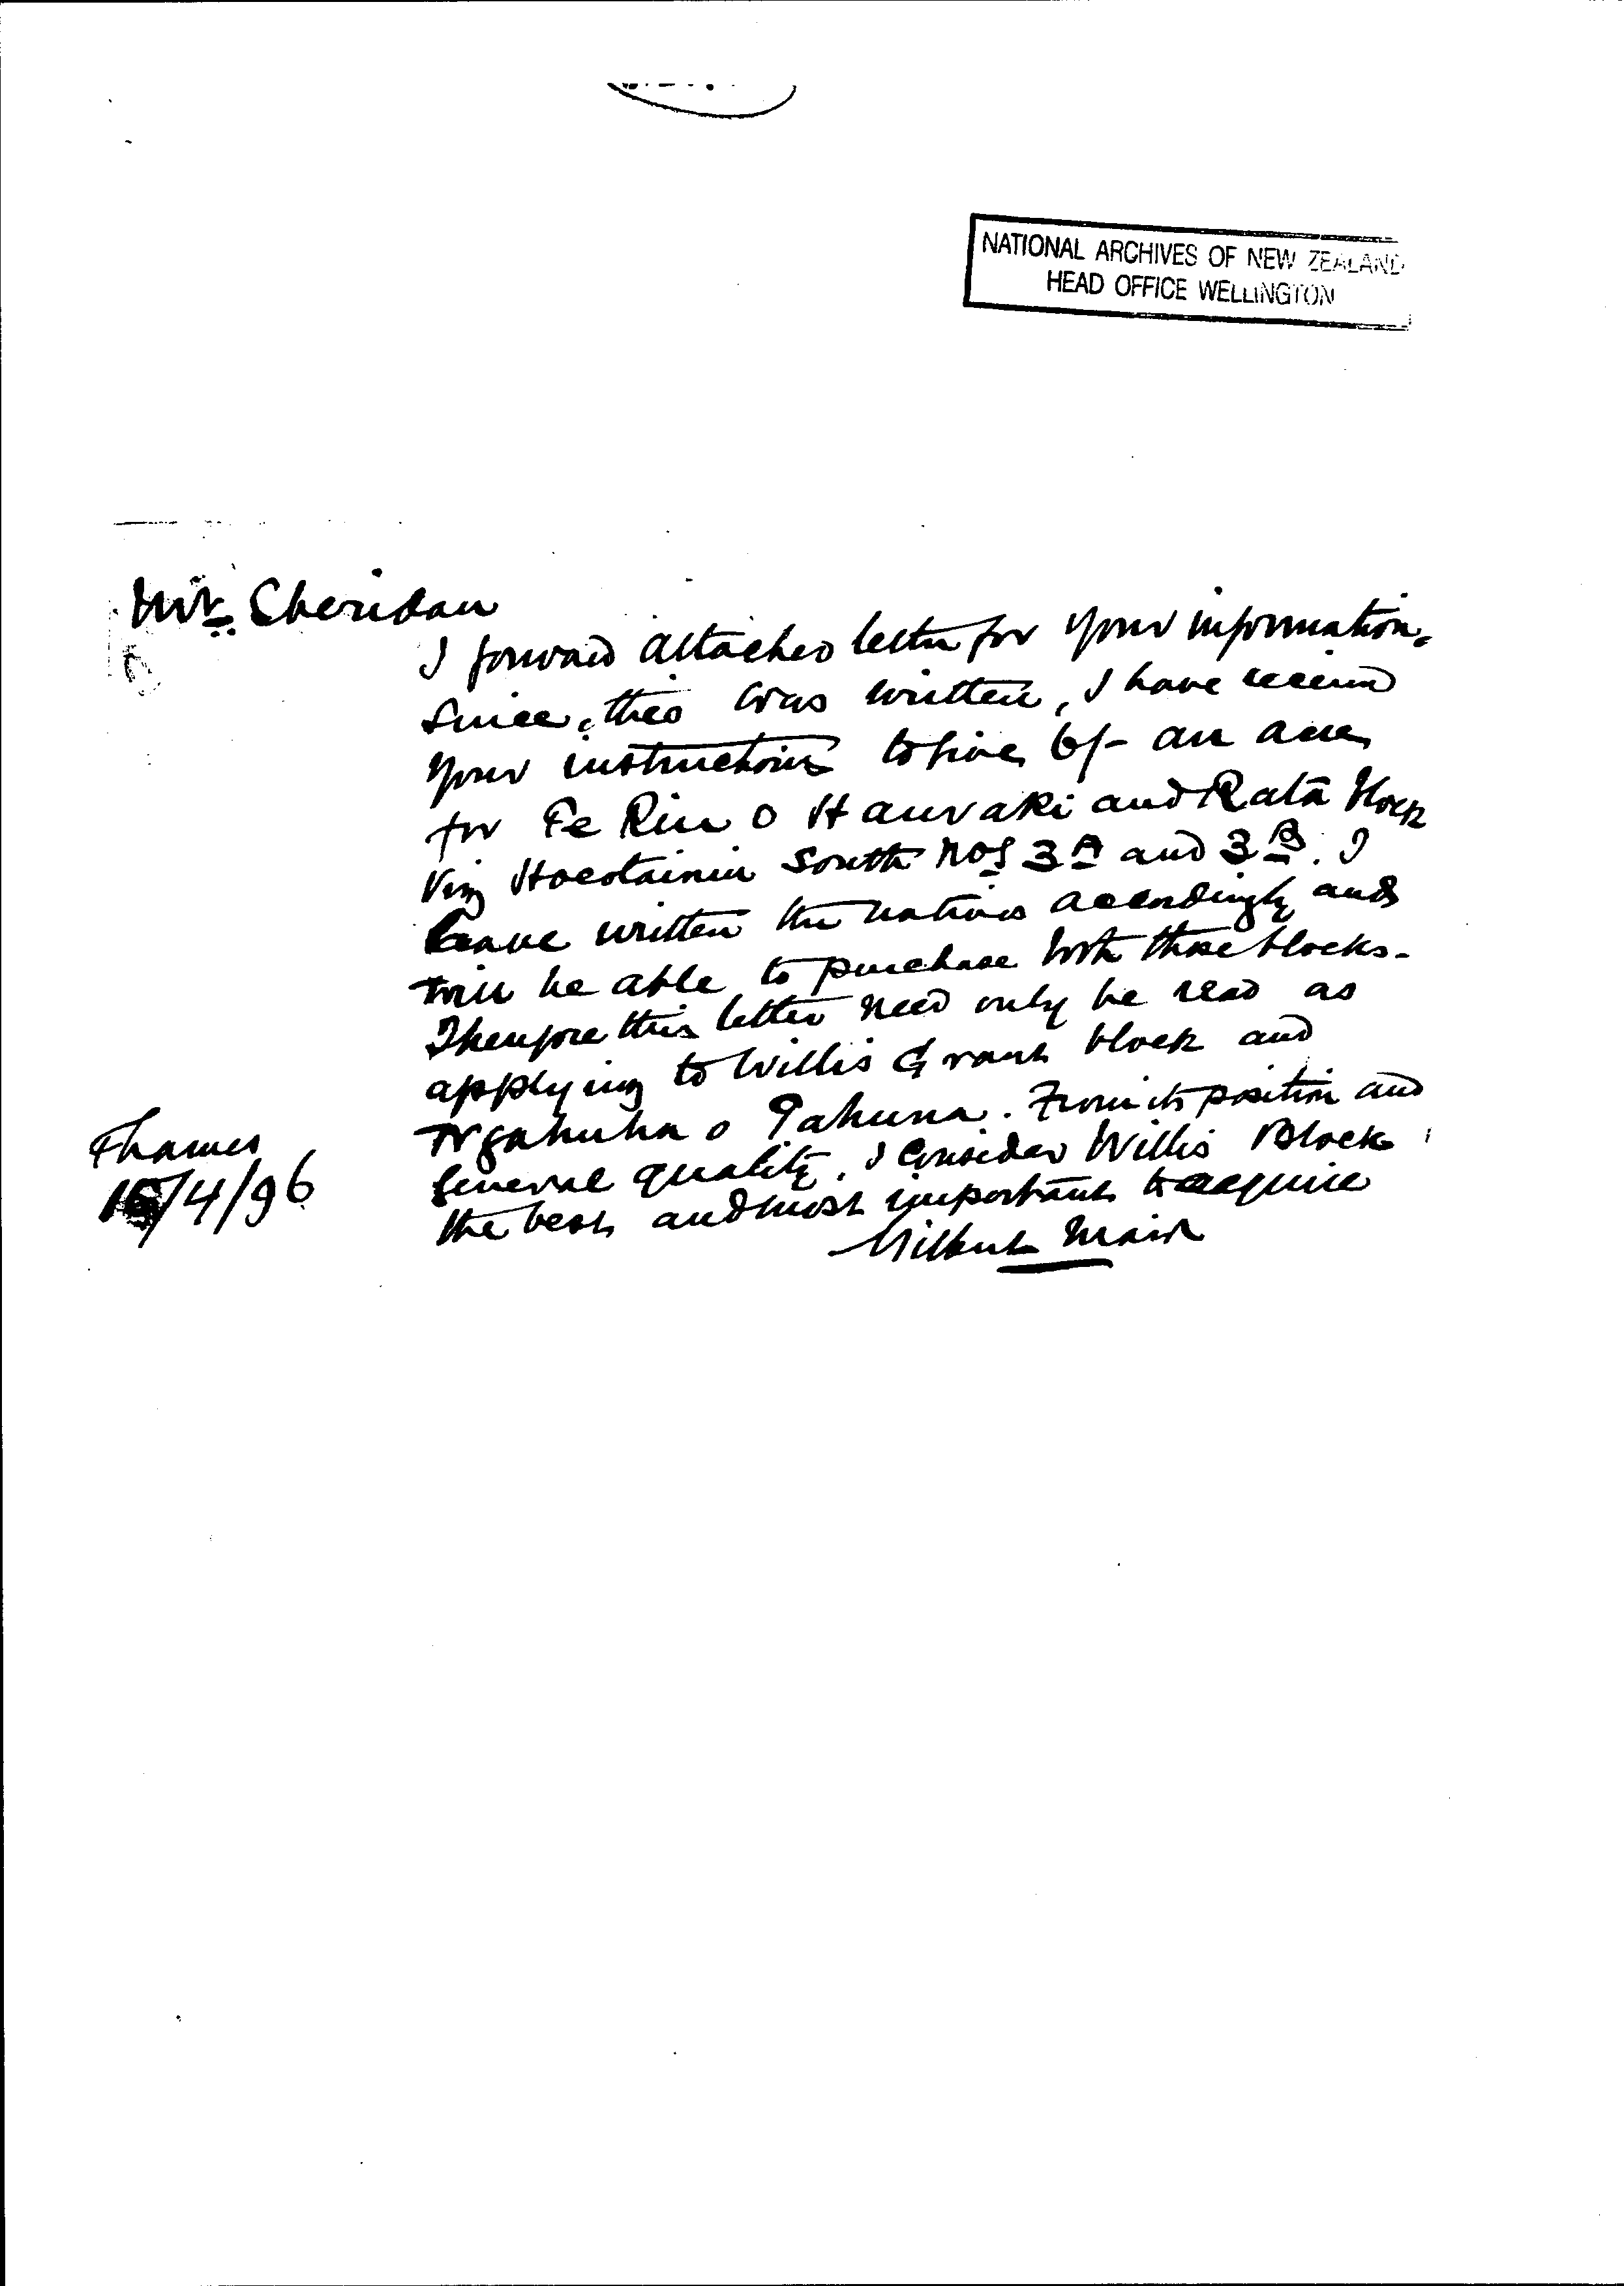 NATIONAL ARCHIVES OF NEW ZEALAND
HEAD OFFICE WELLINGTON
Mr. Sheridan
I forward attached letter for your information.
Since this was written, I have received
your instructions to give 6/- an acre
for Te Riu o Hauraki and Rata Block
Viz Hoeotainui South Nos 3A and 3B. I
have written the natives accordingly and
will be able to purchase both these blocks.
Therefore this letter need only be read as
applying to Willis Grant block and
Ngahuha o Pahuna. From its position and
General quality, I consider Willis Block
the best and most important to acquire
Gilbert Mair
Thames
/4/96